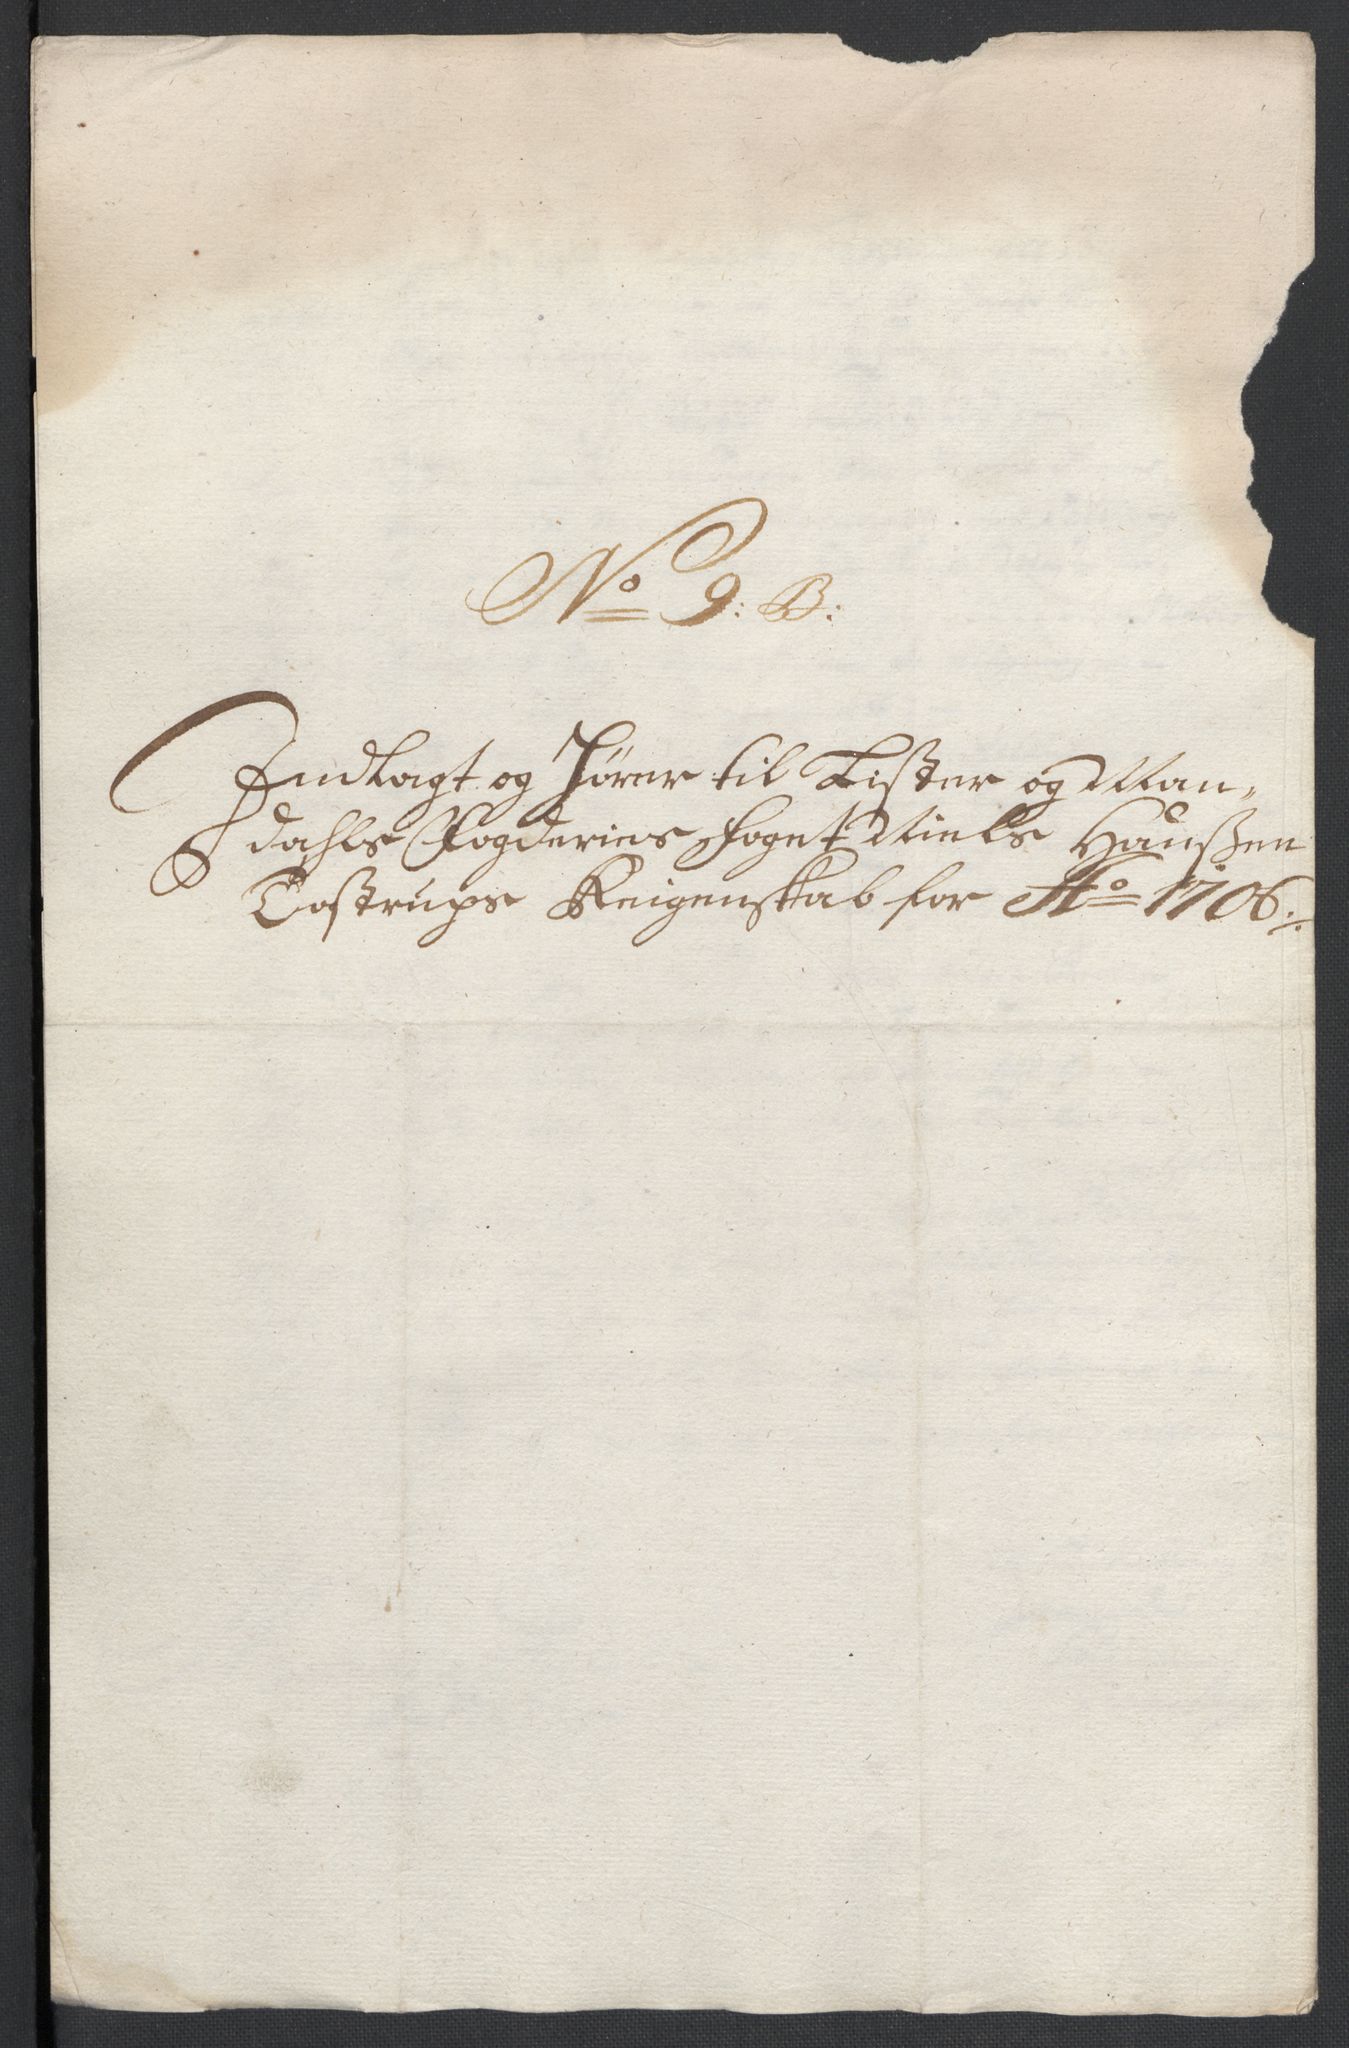 No 9: B:
Indlagt og hører til Lister og Man-
dahls Fogderies Foget Niels Hanßen
Tostrups Reigenskab for Ao 1706.